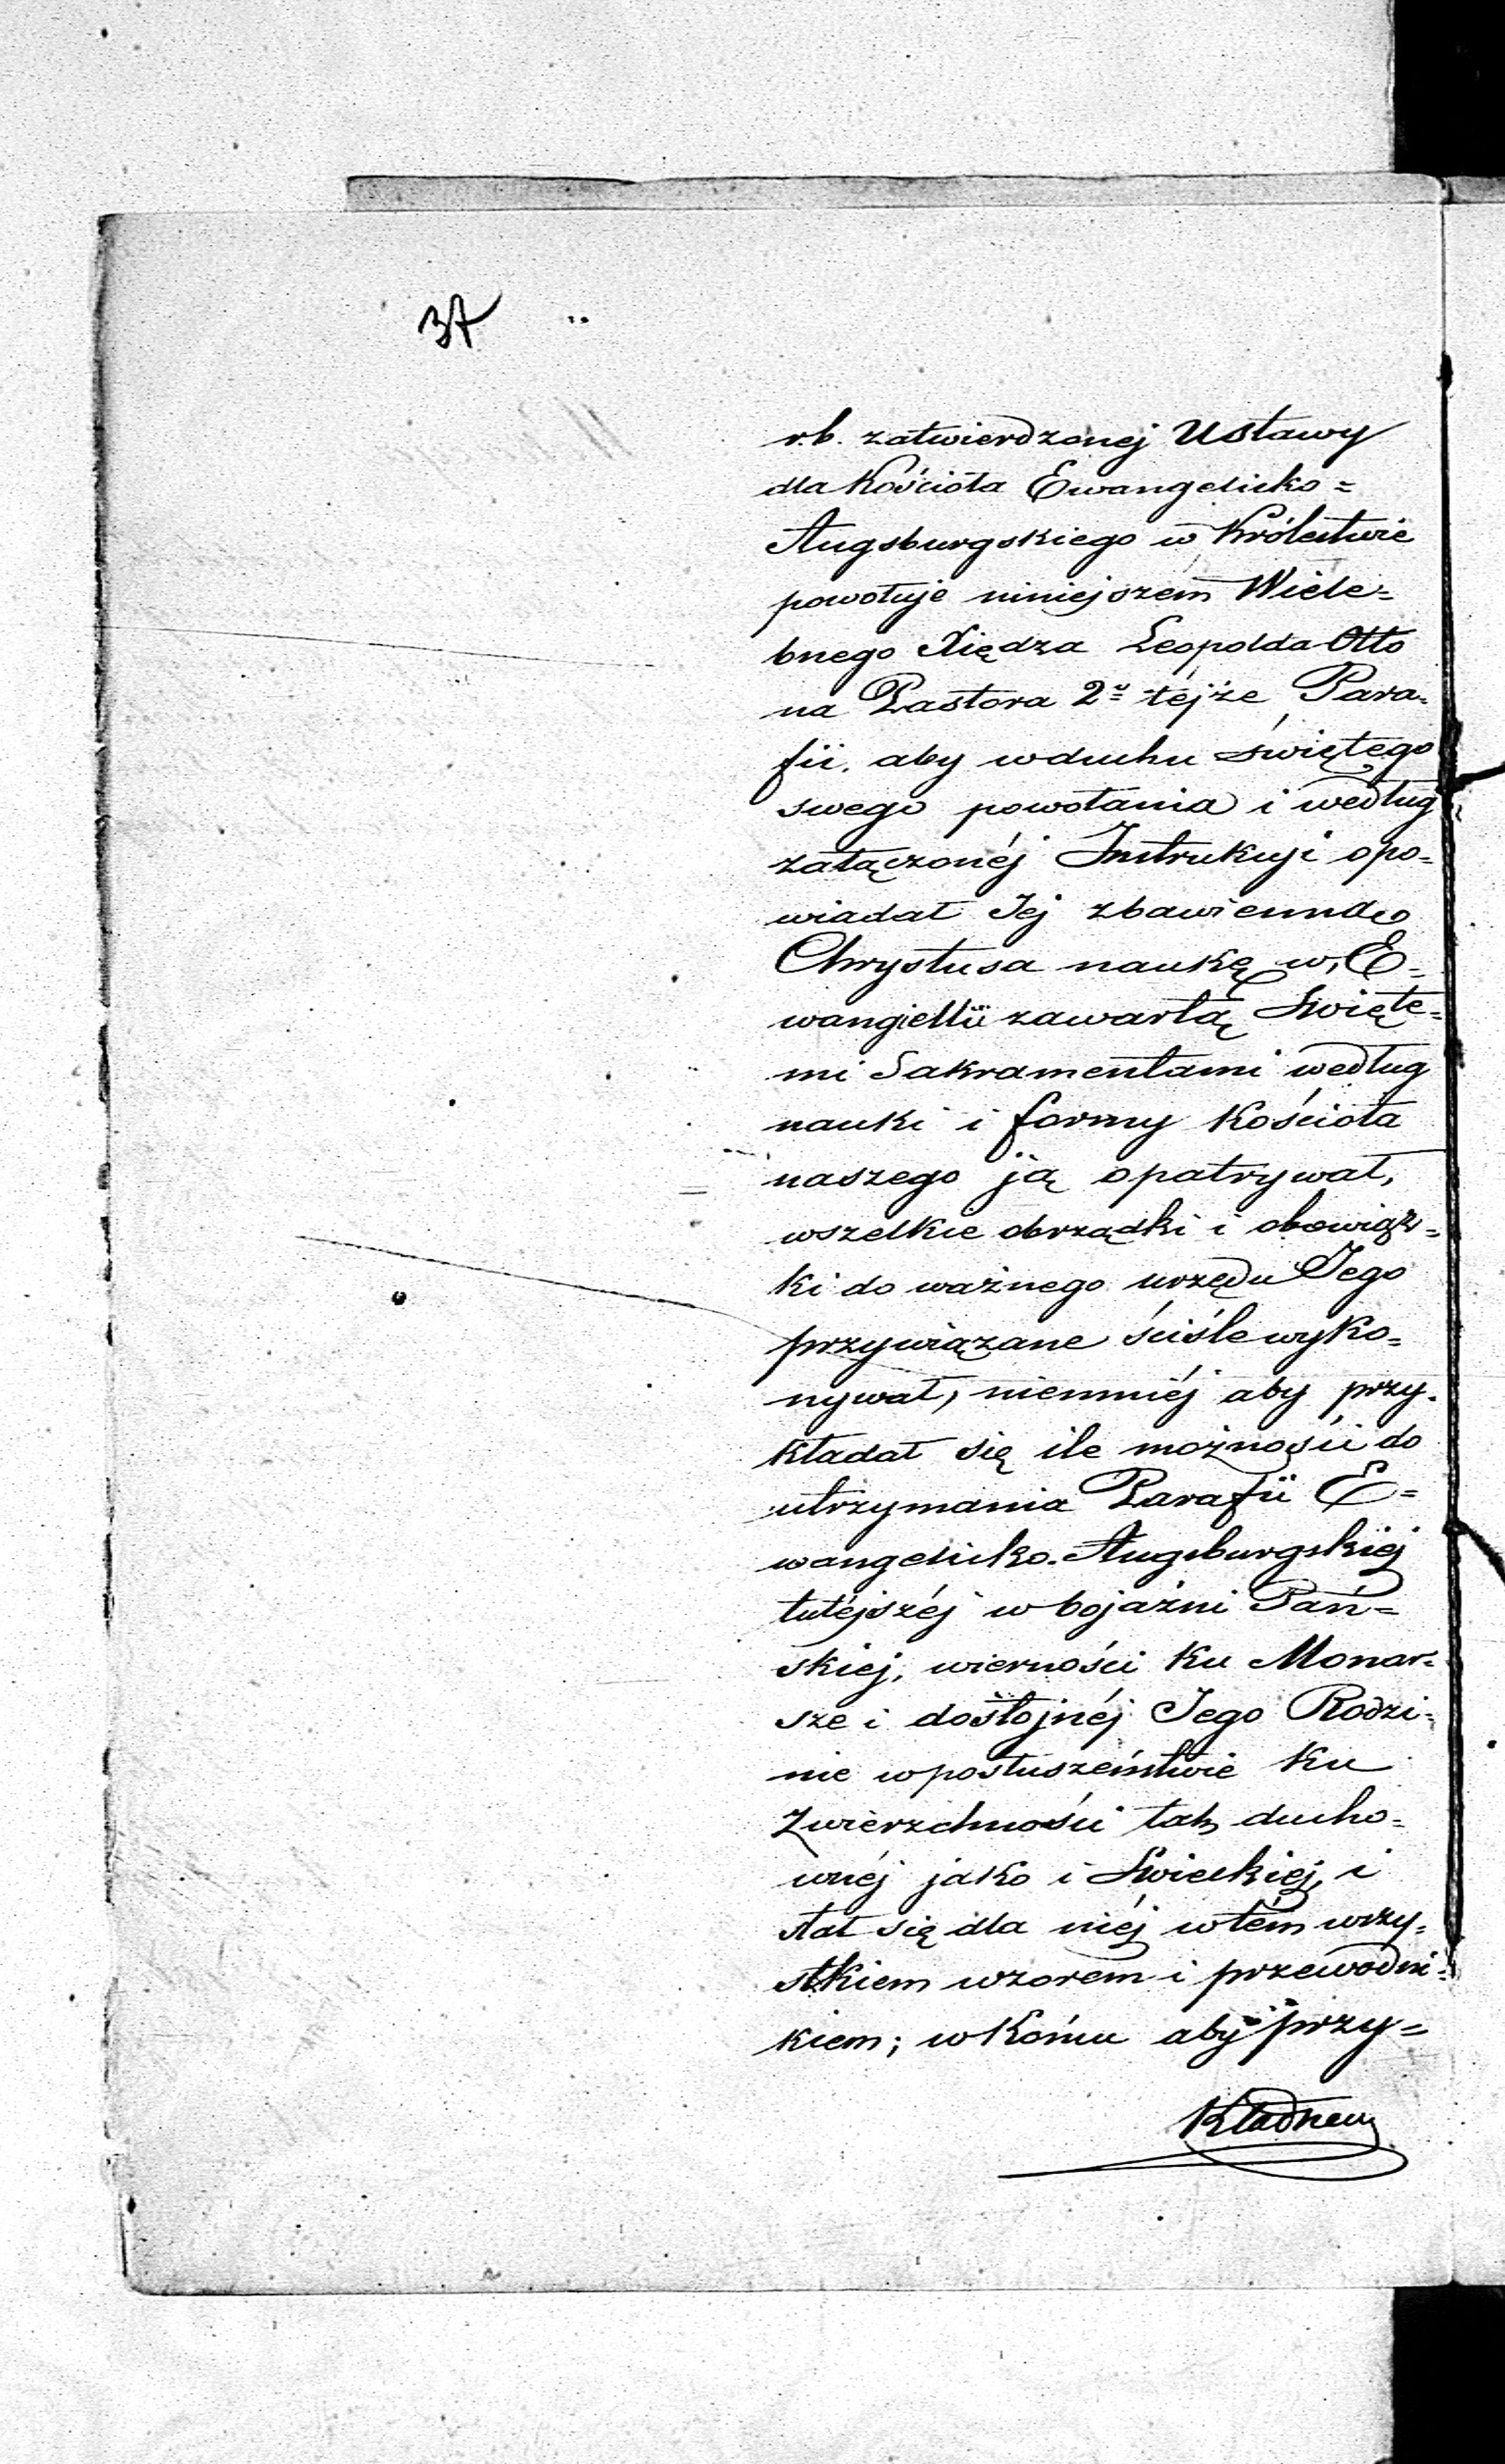 37
r.b. zatwierdzonej Ustawy
dla Kościoła Ewangelicko=
Augsburgskiego w Królestwie
powołuje niniejszem Wiele=
bnego Xiędza Leopolda Otto
na Pastora 2º tejże Para=
fii. aby w duchu świętego
swego powołania i według
załączonéj Instrukcyi opo=
wiadał Jej zbawienną
Chrystusa naukę w E=
wangielii zawartą Święte=
mi Sakramentami według
nauki i formy Kościoła
naszego ją opatrywał,
wszelkie obrządki i obowiąz=
ki do ważnego urzędu Jego
przywiązane ściśle wyko=
nywał, niemniéj aby przy=
kładał się ile możności do
utrzymania Parafii E=
wangelicko-Augsburgskiej
tutéjszéj w bojaźni Pań=
skiej, wierności ku Monar=
sze i dostojnéj Jego Rodzi=
nie w posłuszeństwie ku
Zwierzchności tak ducho=
wnéj jako i Świeckiej, i
stał się dla niéj w tém wszy=
stkiem wzorem i przewodni=
kiem; w końcu aby przy=
kładnem